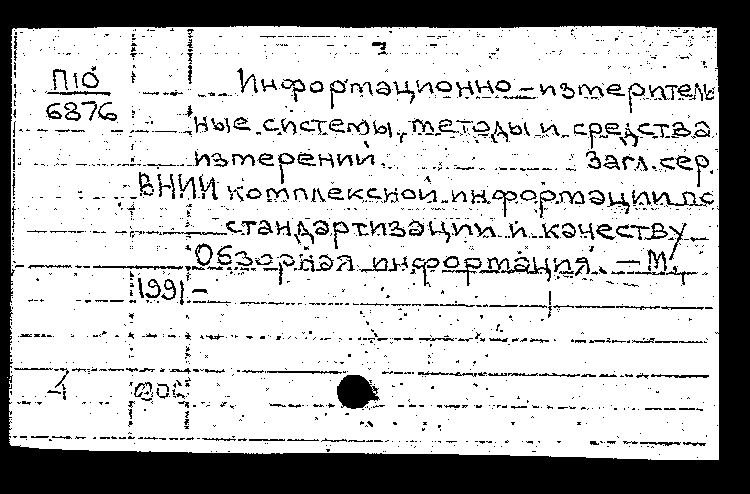 П10
6876
Информационно-измеритель
ные системы, методы и средства
измерений. Загл. сер.
ВНИИ комплексной информации по
стандартизации и качеству
Обзорная информация. – М.,
1991 –